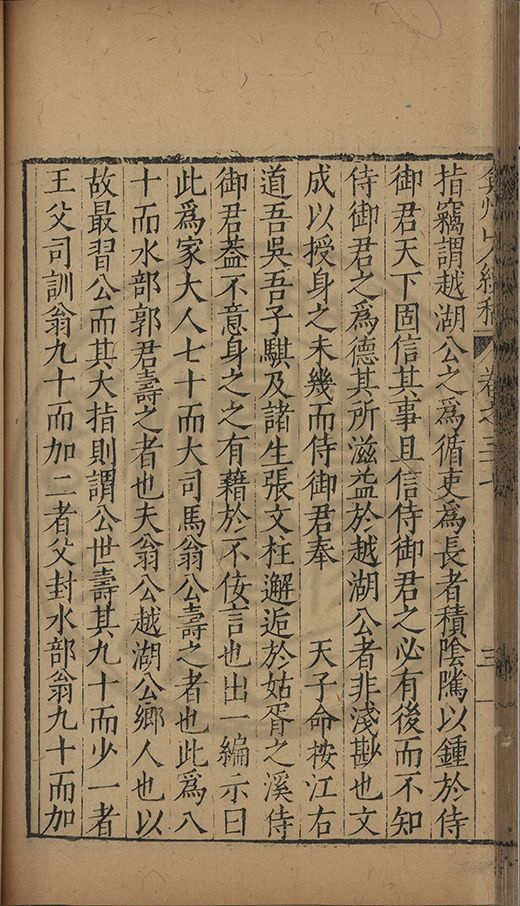 弇州山人續稿 卷之三十七 三
指竊謂越湖公之為循吏為長者積陰隲以鍾於侍
御君天下固信其事且信侍御君之必有後而不知
侍御君之為德其所滋益於越湖公者非淺尠也文
成以授身之未幾而侍御君奉 天子命按江右
道吾吳吾子騏及諸生張文柱邂逅於姑胥之溪侍
御君葢不意身之之有藉於不佞言也出一編示曰
此為家大人七十而大司馬翁公壽之者也此為八
十而水部郭君壽之者也夫翁公越湖公鄉人也以
故最習公而其大指則謂公世壽其九十而少一者
王父司訓翁九十而加二者父封水部翁九十而加